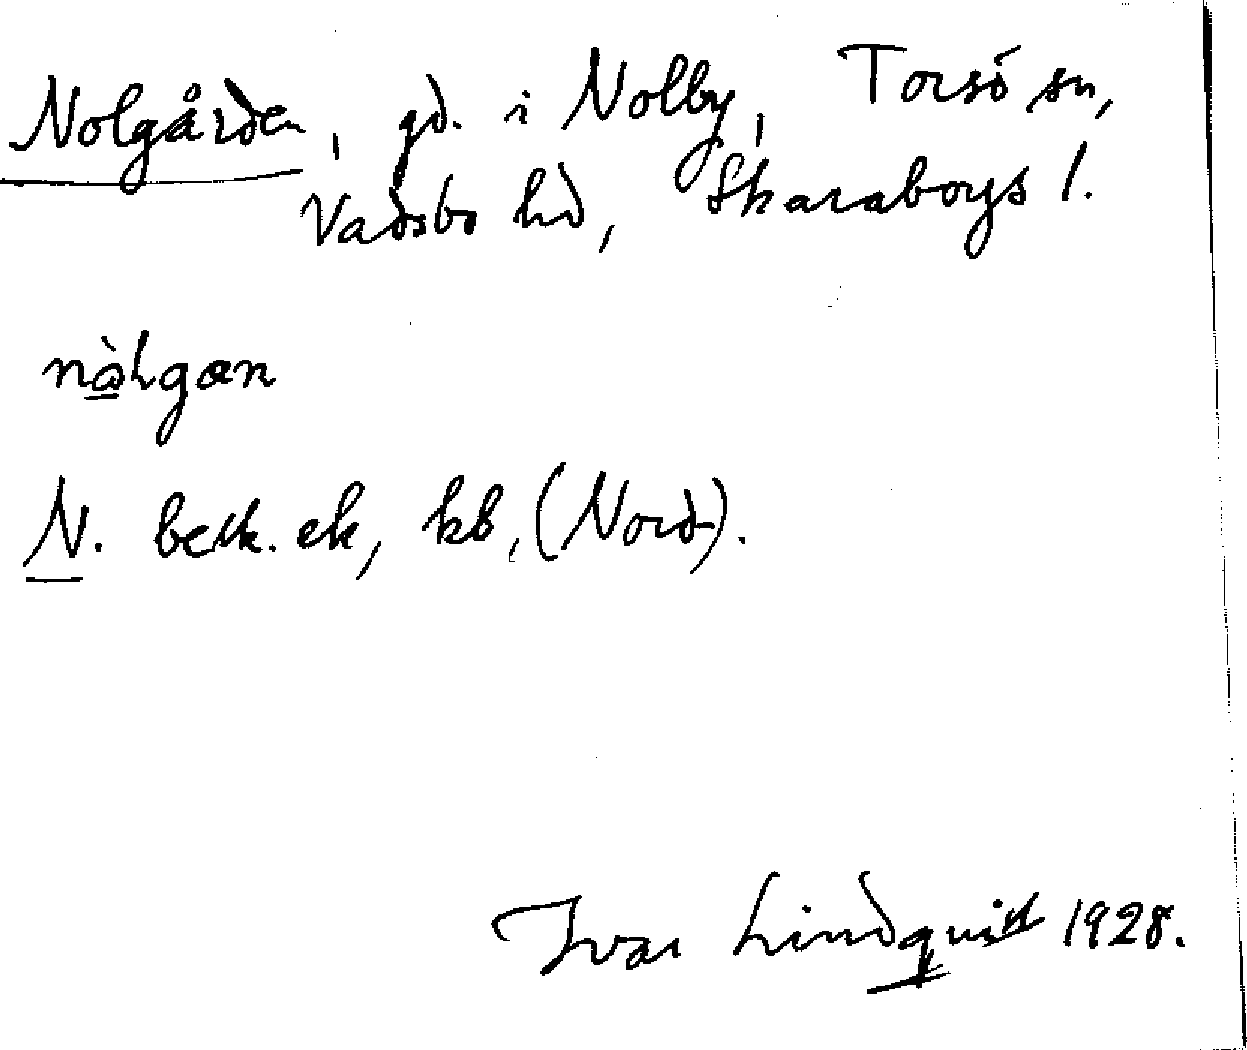 Nolgården, gd. i Nolby, Torsö sn,
Vadsbo hd, Skaraborgs l.
nàlgan
N. beck. ek, kb, (Nord).
Ivar Lindquist 1928.